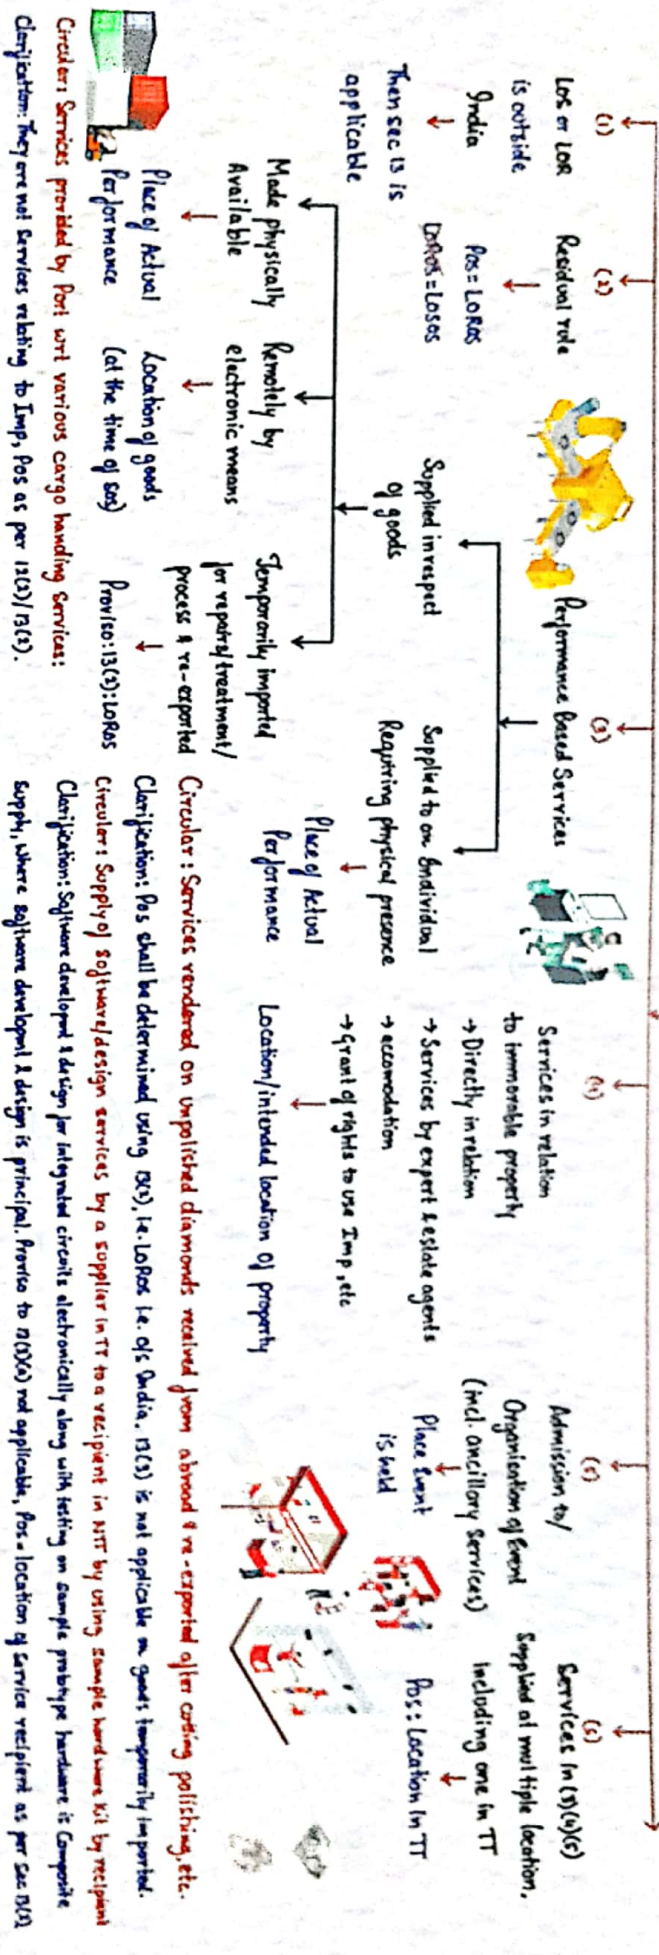 (1)
LOS or LOR
is outside
India
Then sec 13 is
applicable
(2)
Residual rule
POS = LOROS
LOROS = LOSOS
(3)
Performance Based Services
Supplied in respect
of goods
Made physically
Available
Place of Actual
Performance
Remotely by
electronic means
Location of goods
(at the time of SOS)
Temporarily imported
for repairs/treatment/
process & re-exported
Proviso:13(2):LOROS
Supplied to an Individual
Requiring physical presence
Place of Actual
Performance
(4)
Services in relation
to immovable property
→ Directly in relation
→ Services by expert & estate agents
→ accomodation
→ Grant of rights to use Imp, etc
Location/intended location of property
(5)
Admission to/
Organisation of Event
(incl. ancillory services)
Place Event
is held
(6)
Services in (3)(4)(5)
Supplied at multiple location,
Including one in TT
POS = Location in TT
Circular: Services provided by Port wrt various cargo handing Services:
Clarification: They are not Services relating to Imp, Pos as per 12(2)/13(2).
Circular: Services rendered on unpolished diamonds received from abroad & re-exported after cutting polishing, etc.
Clarification: Pos shall be determined using 13(2), i.e. LOROS i.e. o/s India. 13(3) is not applicable on goods temporarily imported.
Circular: Supply of Software/design services by a supplier in TT to a recipient in NTT by using sample hardware kit by recipient
Clarification: Software developmt & design for integrated circuits electronically along with testing on sample prototype hardware is Composite
Supply, where software developmt & design is principal. Proviso to 13(3)(a) not applicable, Pos = location of service recipient as per sec 13(2)